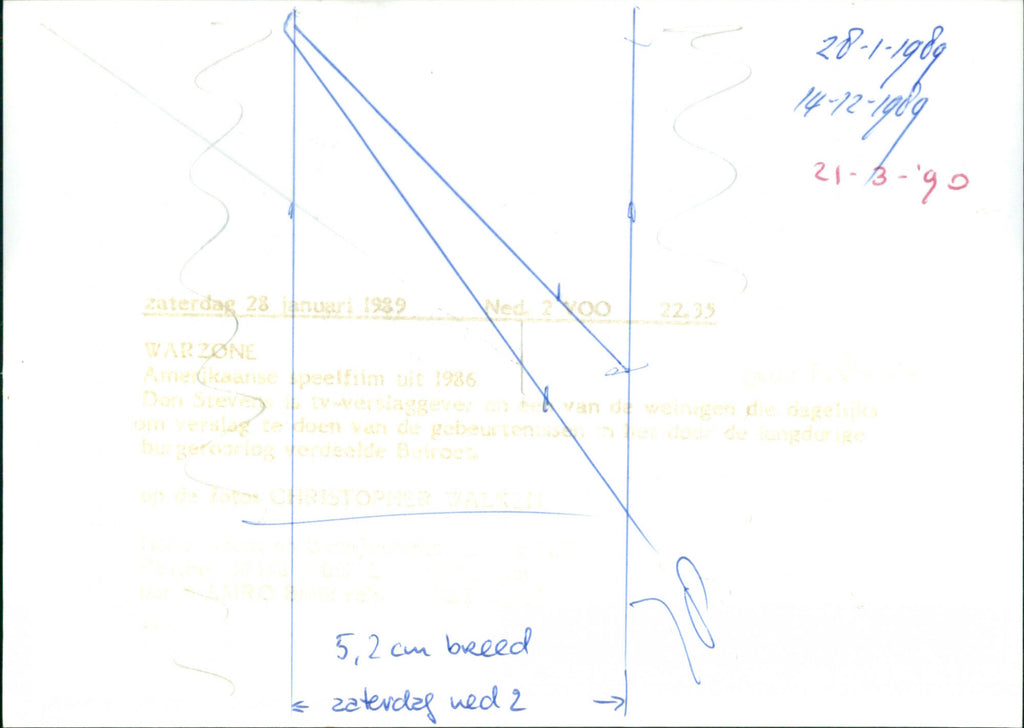 28-1-1989
14-12-1989
21-3-'90
zaterdag 28 januari 1989 Ned. 2 VOO 22.35
WARZONE
Amerikaanse speelfilm uit 1986
Don Stevens is tv-verslaggever en een van de weinigen die dagelijks
om verslag te doen van de gebeurtenissen in het door de langdurige
burgeroorlog verdeelde Beiroet.
op de fotos CHRISTOPHER WALKEN
5,2 cm breed
zaterdag ned 2